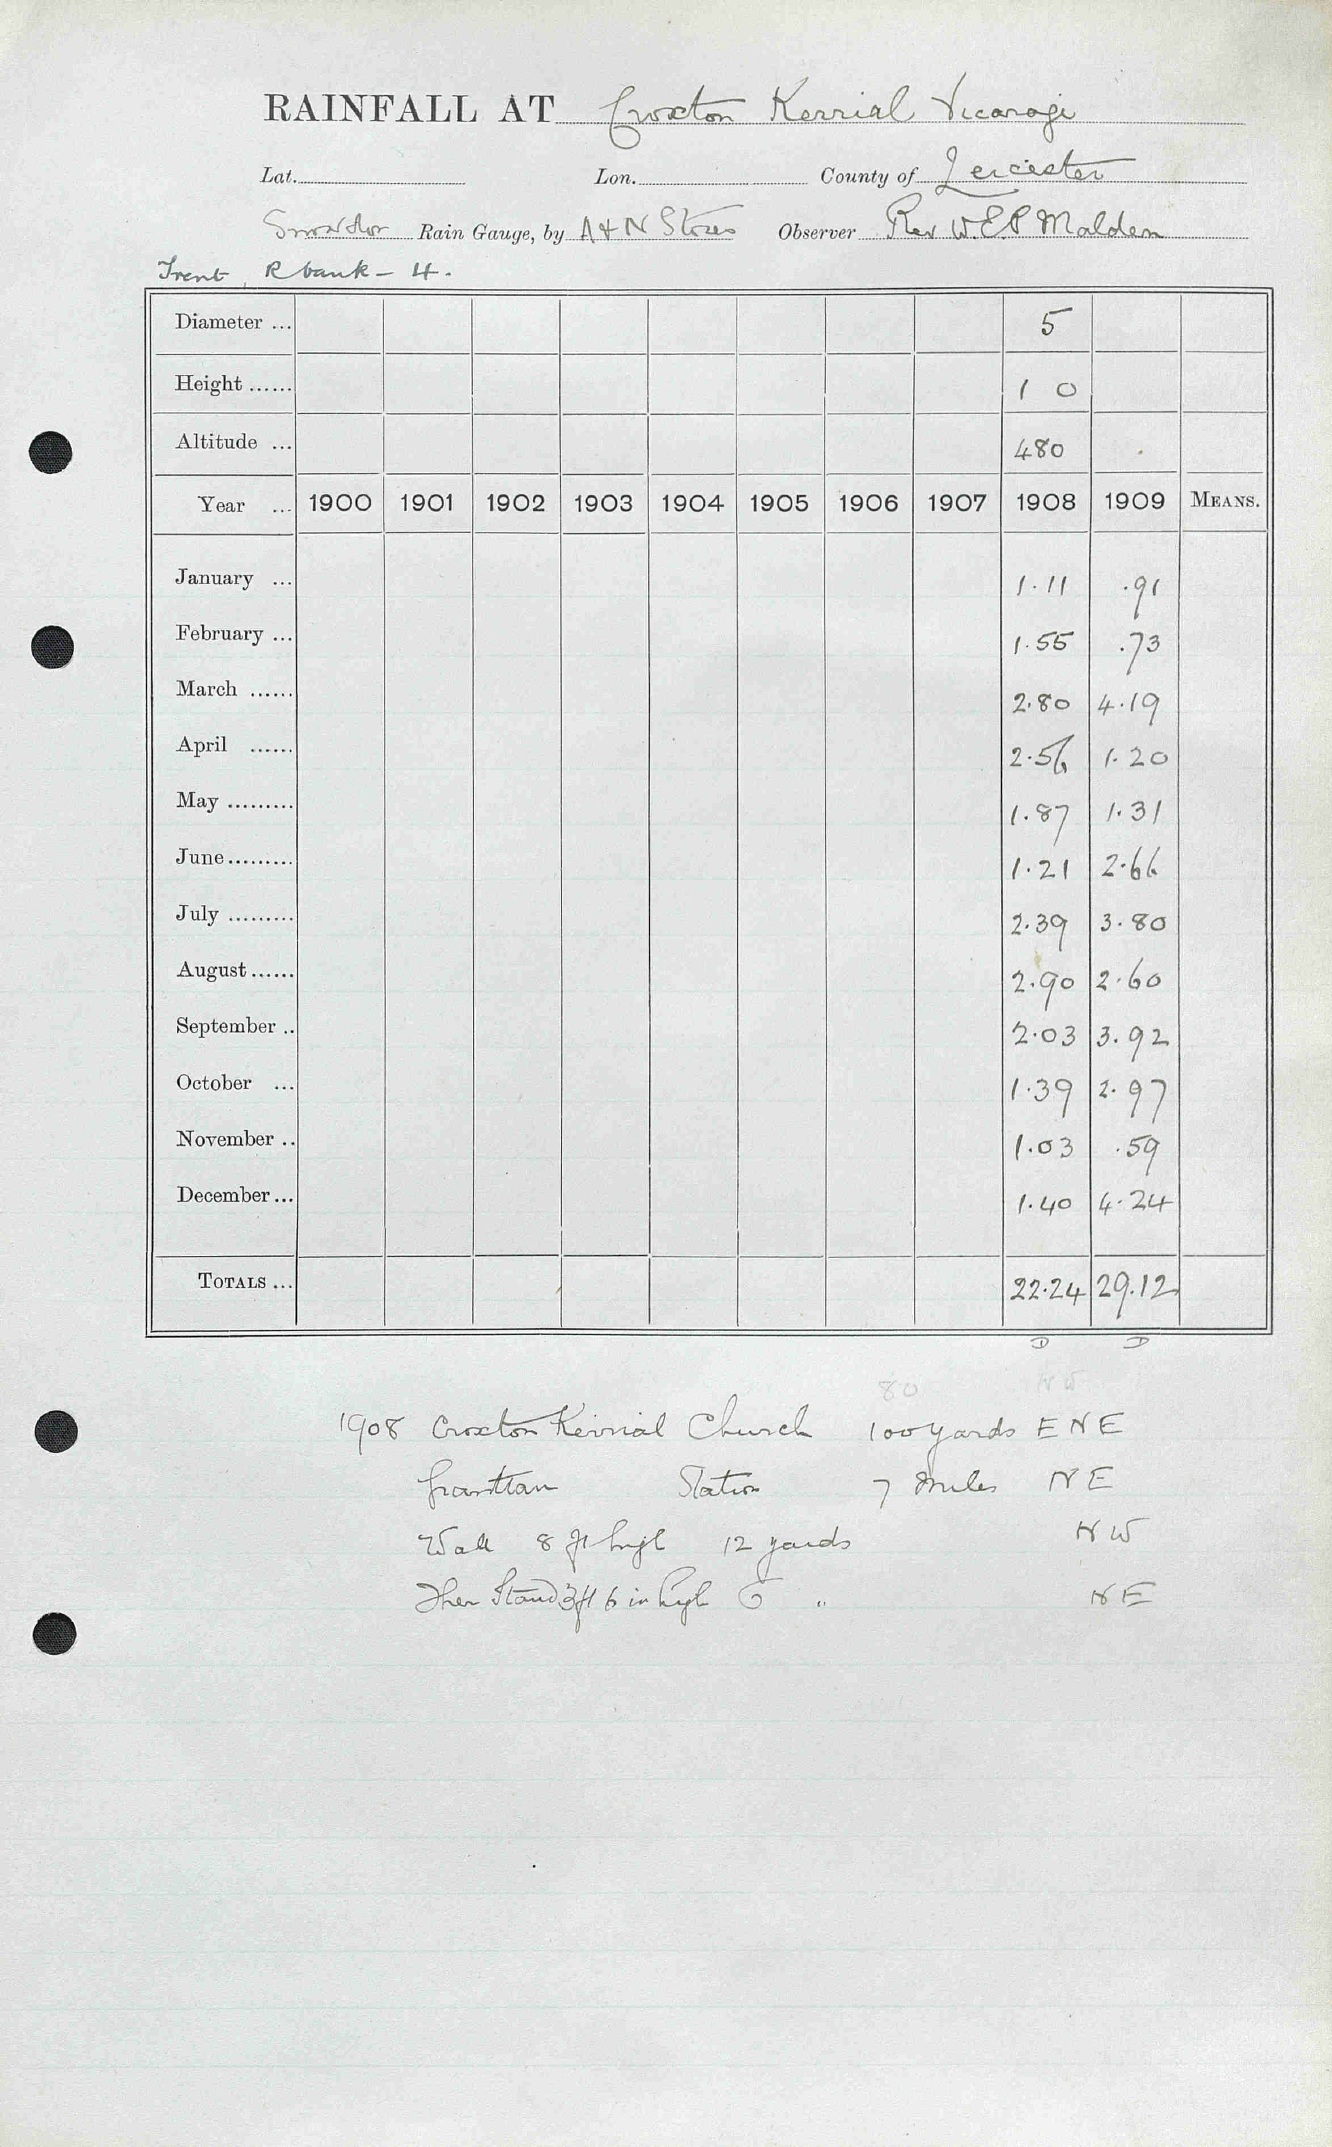 RAINFALL AT Croxton Kerrial Vicarage
Lat. Lon. County of Leicester
Snowdon Rain Gauge, by A & N Stores Observer Rev W.E.P Malden
Trent, R bank - 4.
Diameter ... 5
Height ...... 1 0
Altitude ... 480
Year ... 1900 1901 1902 1903 1904 1905 1906 1907 1908 1909 MEANS.
January ... 1.11 .91
February ... 1.55 .73
March ...... 2.80 4.19
April ...... 2.56 1.20
May ......... 1.87 1.31
June ......... 1.21 2.66
July ......... 2.39 3.80
August ...... 2.90 2.60
September .. 2.03 3.92
October ... 1.39 2.97
November .. 1.03 .59
December ... 1.40 4.24
TOTALS ... 22.24 29.12
D D
80 NW
1908 Croxton Kerrial Church 100 yards E N E
Grantham Station 7 Miles N E
Wall 8 ft high 12 yards N W
Ther Stand 3 ft 6 in high 6 " N E